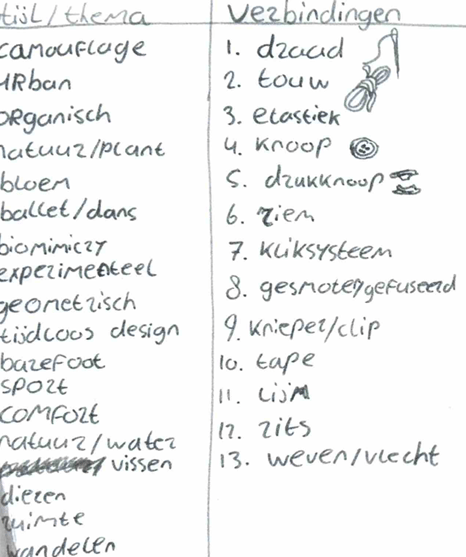 stijl/thema
camouflage
urban
organisch
natuur/plant
bloem
ballet/dans
biomimicry
experimenteel
geometrisch
tijdloos design
barefoot
sport
comfort
natuur/water
vissen
dieren
ruimte
wandelen
Verbindingen
1. draad
2. touw
3. elastiek
4. knoop
5. drukknoop
6. riem
7. kliksysteem
8. gesmolten/gefuseerd
9. knieper/clip
10. tape
11. lijm
12. rits
13. weven/vlecht